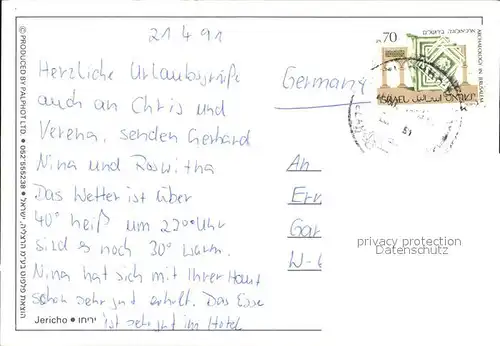 21 4 91
Herzliche Urlaubsgrüße
auch an Chris und
Verena, senden Gerhard
Nina und Roswitha
Das Wetter ist über
40° heiß um 22⁰⁰ Uhr
sind es noch 30° warm.
Nina hat sich mit Ihrer Haut
schon sehr gut erholt. Das Esse
ist sehr gut im Hotel
Jericho • יריחו
© PRODUCED BY PALPHOT LTD • 052-555238 •
Germany
An
Err
Gar
W-
70
ארכיאולוגיה בירושלים
ARCHAEOLOGY IN JERUSALEM
ISRAEL اسرائيل ישראל
privacy protection
Datenschutz